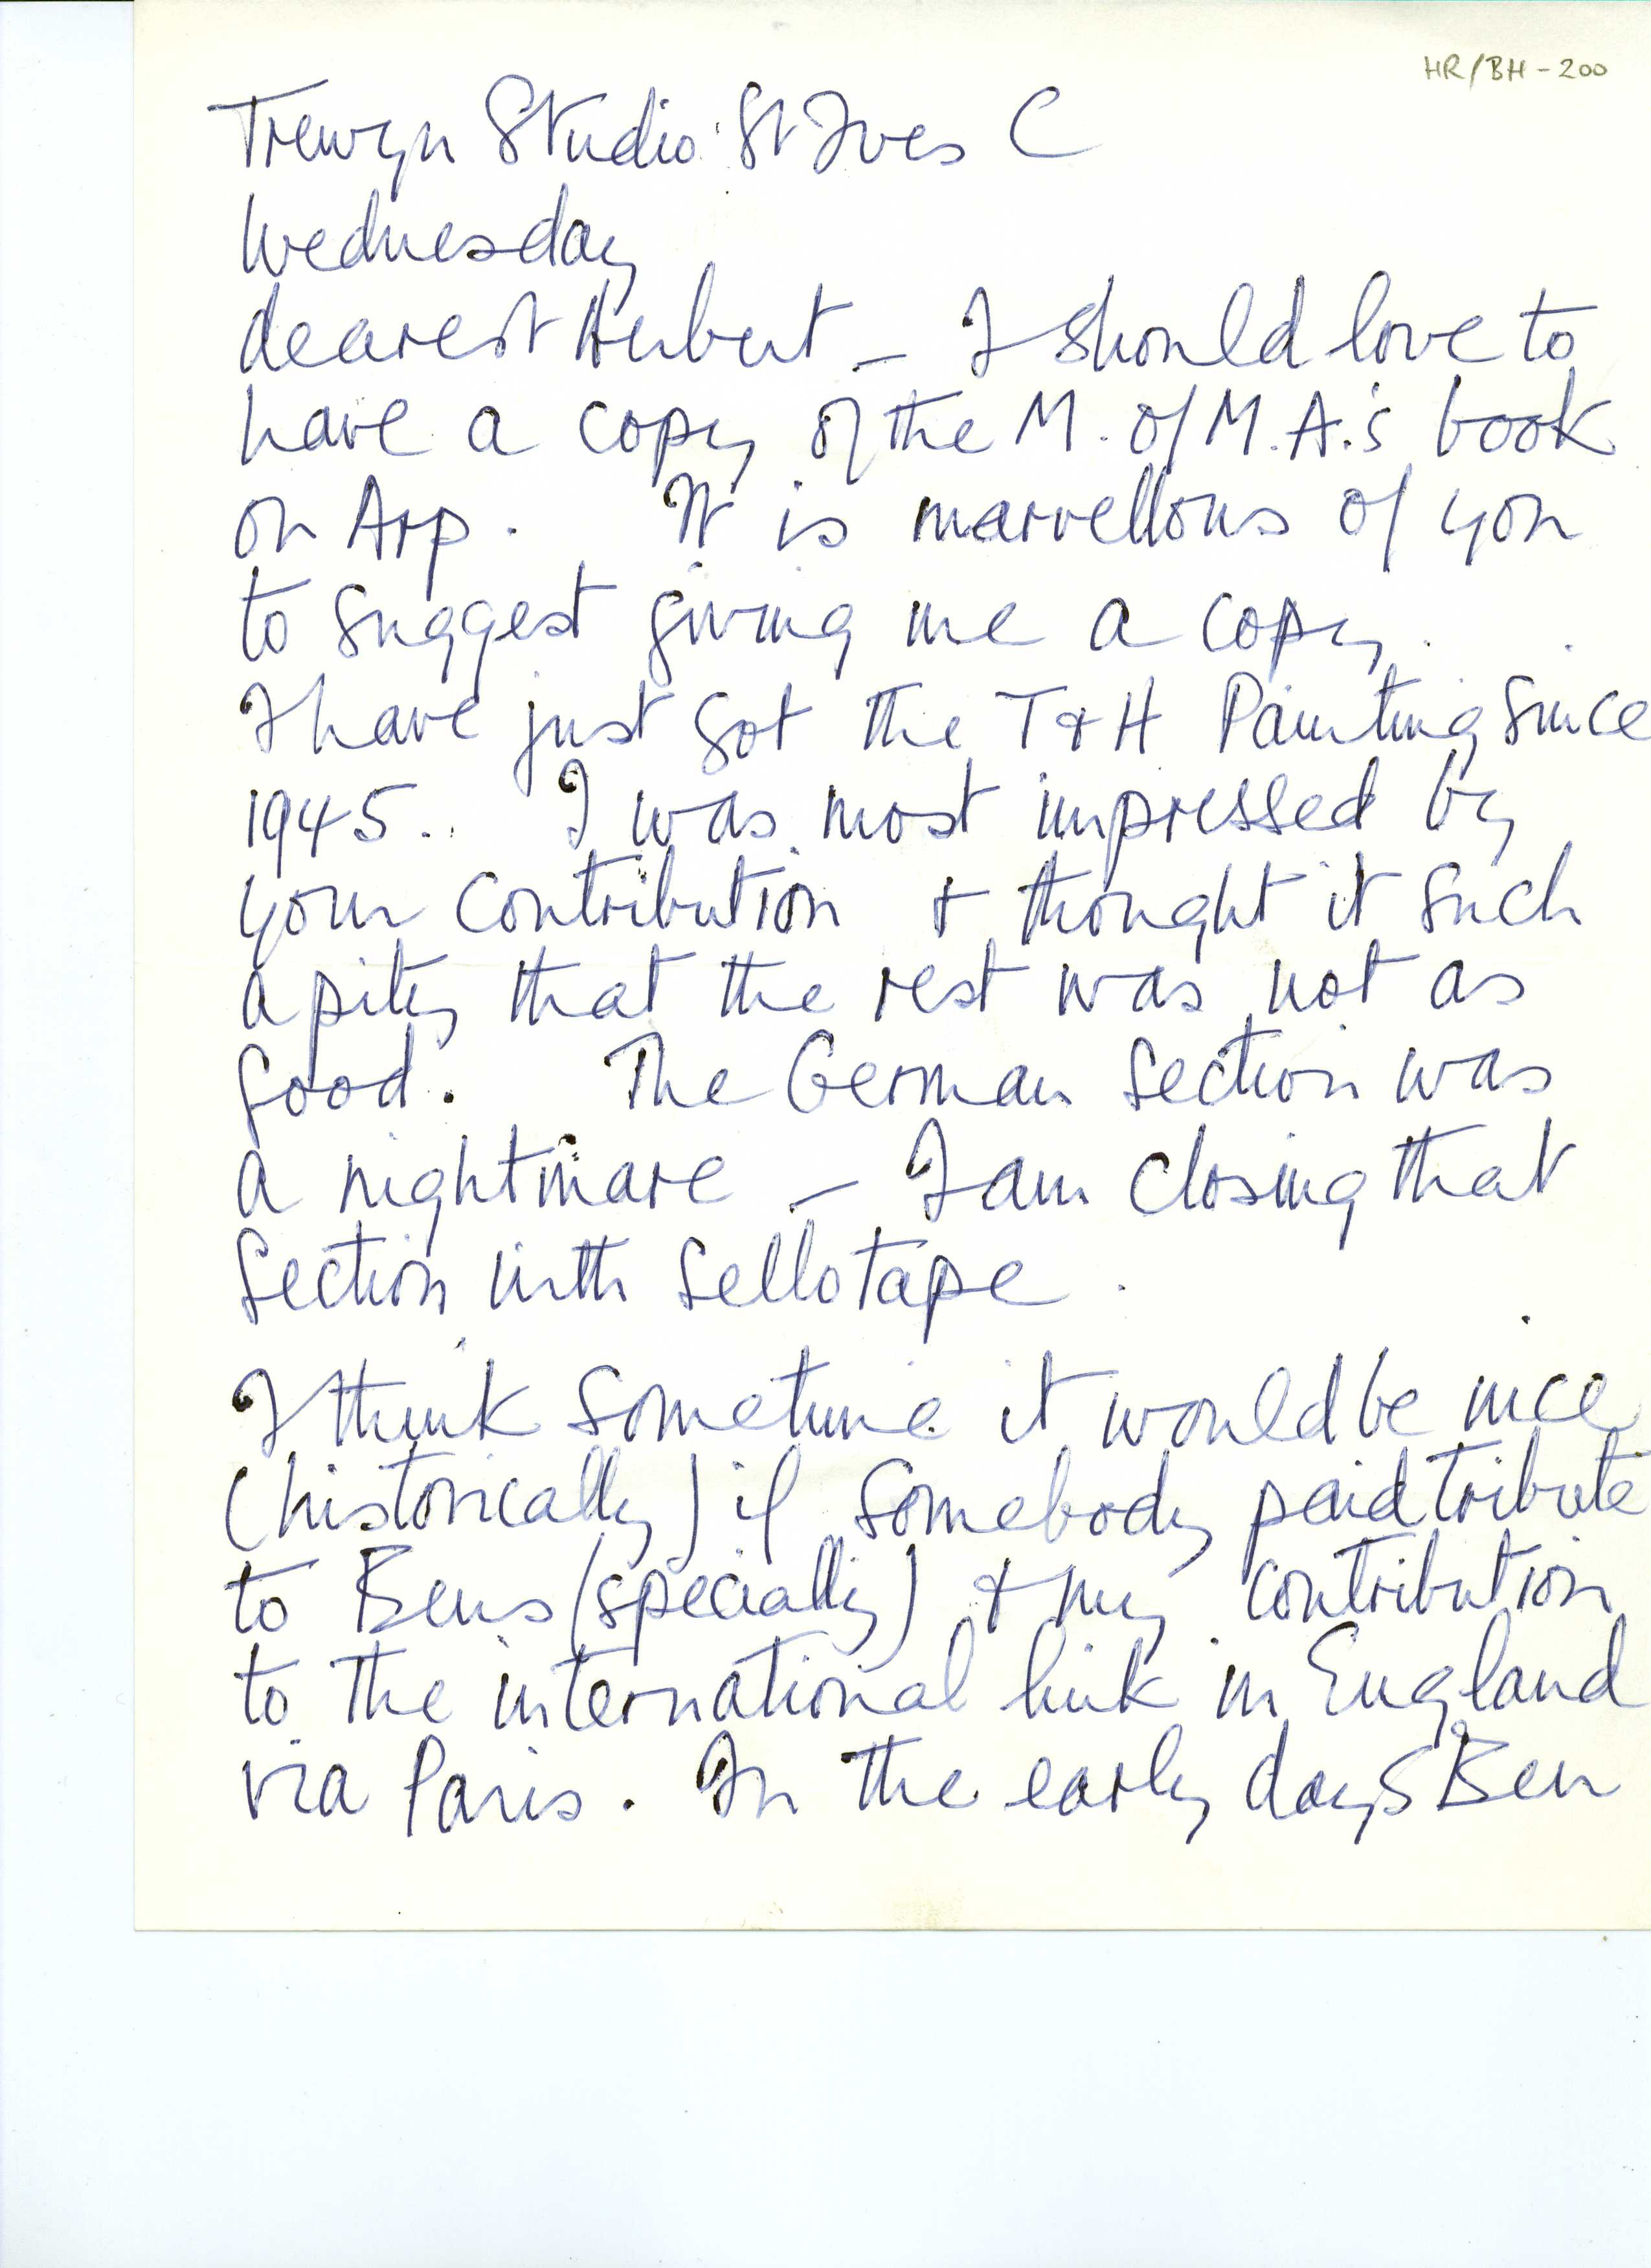 HR/BH-200
Trewyn Studio. St Ives C
Wednesday
dearest Herbert – I should love to
have a copy of the M. of M.A.'s book
on Arp. It is marvellous of you
to suggest giving me a copy.
I have just got the T & H Painting Since
1945.. I was most impressed by
your contribution & thought it such
a pity that the rest was not as
good. The German section was
a nightmare – I am closing that
section with sellotape.
I think sometime it would be nice
(historically) if somebody paid tribute
to Bens (specially) & my contribution
to the international link in England
via Paris. In the early days Ben